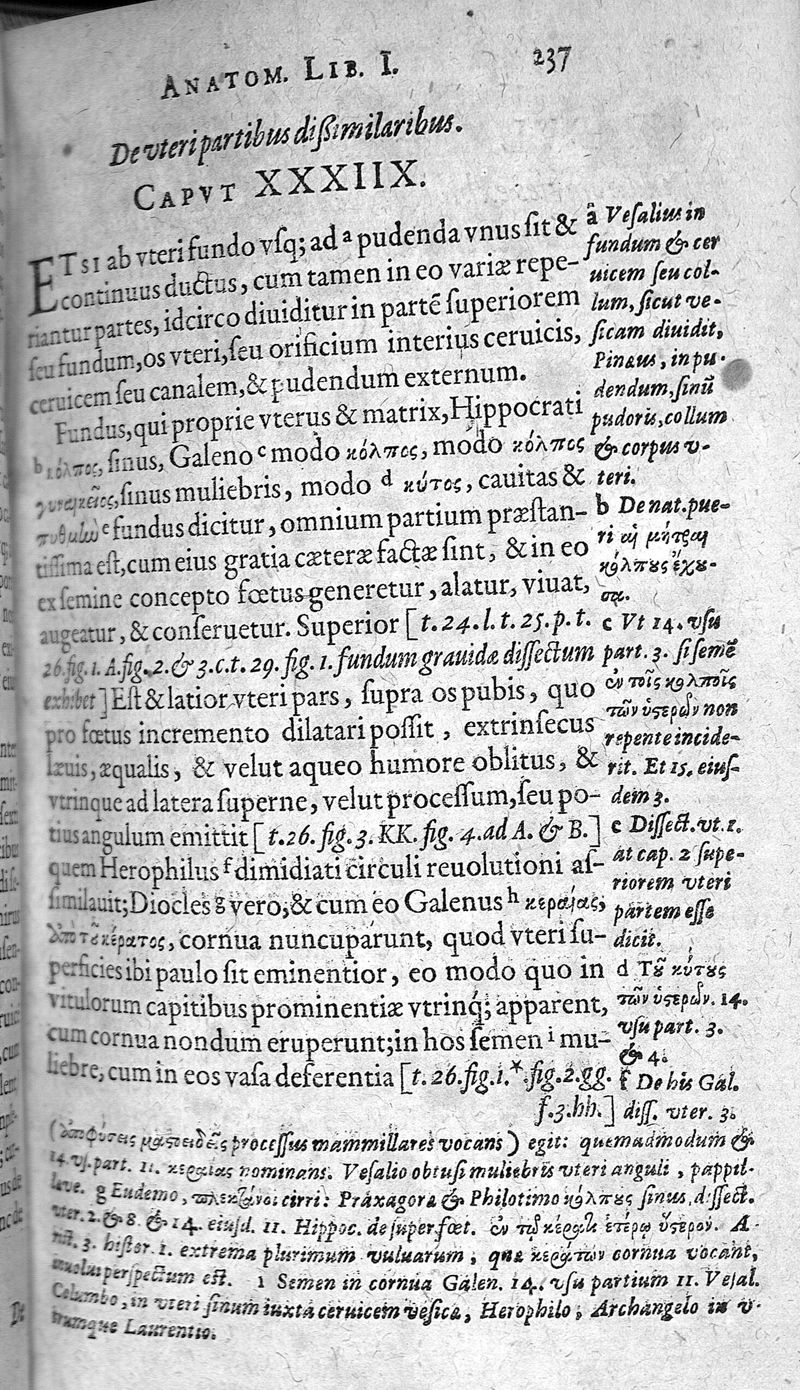 ANATOM. LIB. I. 237
De vteri partibus dißimilaribus.
CAPVT XXXIIX.
ETSI ab vteri fundo vsq; ad ᵃ pudenda vnus sit &
continuus ductus, cum tamen in eo variæ repe-
riantur partes, idcirco diuiditur in partẽ superiorem
seu fundum, os vteri, seu orificium interius ceruicis,
ceruicem seu canalem, & pudendum externum.
Fundus, qui proprie vterus & matrix, Hippocrati
ᵇ κόλπος, sinus, Galeno ᶜ modo κόλπος, modo κόλπος
γυναικεῖος, sinus muliebris, modo ᵈ κύτος, cauitas &
ᵉ fundus dicitur, omnium partium præstan-
tissima est, cum eius gratia cæteræ factæ sint, & in eo
ex semine concepto fœtus generetur, alatur, viuat,
augeatur, & conseruetur. Superior [t. 24. l. t. 25. p. t.
26. fig. 1. A. fig. 2. & 3. c. t. 29. fig. 1. fundum grauidæ dissectum
exhibet] Est & latior vteri pars, supra os pubis, quo
pro fœtus incremento dilatari possit, extrinsecus
læuis, æqualis, & velut aqueo humore oblitus, &
vtrinque ad latera superne, velut processum, seu po-
tius angulum emittit [t. 26. fig. 3. KK. fig. 4. ad A. & B.]
quem Herophilus ᶠ dimidiati circuli reuolutioni as-
similauit; Diocles g vero, & cum eo Galenus ʰ κεραίας,
ἀπὸ τοῦ κέρατος, cornua nuncuparunt, quod vteri su-
perficies ibi paulo sit eminentior, eo modo quo in
vitulorum capitibus prominentiæ vtrinq; apparent,
cum cornua nondum eruperunt; in hos semen ⁱ mu-
liebre, cum in eos vasa deferentia [t. 26. fig. 1.*. fig. 2. gg.
f. 3. hh.]
a Vesalius in
fundum & cer
uicem seu col-
lum, sicut ve-
sicam diuidit,
Pinæus, in pu-
dendum, sinũ
pudoris, collum
& corpus v-
teri.
b De nat. pue-
ri αἱ μῆτραι
κόλπους ἔχου-
σαι.
c Vt 14. vsu
part. 3. si semẽ
ἐν τοῖς κόλποις
τῶν ὑστερῶν non
repente incide-
rit. Et 15. eius-
dem 3.
e Dissect. vt. 1.
at cap. 2 supe-
riorem vteri
partem esse
dicit.
d Τοῦ κύτους
τῶν ὑστερῶν. 14.
vsu part. 3.
& 4.
f De his Gal.
diss. vter. 3.
(ἀποφύσεις μαστοειδεῖς processus mammillares vocans) egit: quemadmodum &
14. vs. part. 11. κεραίας nominans. Vesalio obtusi muliebris vteri anguli, pappil-
læve. g Eudemo, πλεκτάναι cirri: Praxagoræ & Philotimo κόλπους sinus, dissect.
vter. 2. & 8. & 14. eiusd. 11. Hippoc. de superfœt. ἐν τῷ κέρατι ἑτέρῳ ὕστερον. A-
rist. 3. histor. 1. extrema plurimum vuluarum, quæ κεράτων cornua vocant,
perspectum est. i Semen in cornua Galen. 14. vsu partium 11. Vesal.
Columbo, in vteri sinum iuxta ceruicem vesicæ, Herophilo, Archangelo in v-
trumque Laurentio.